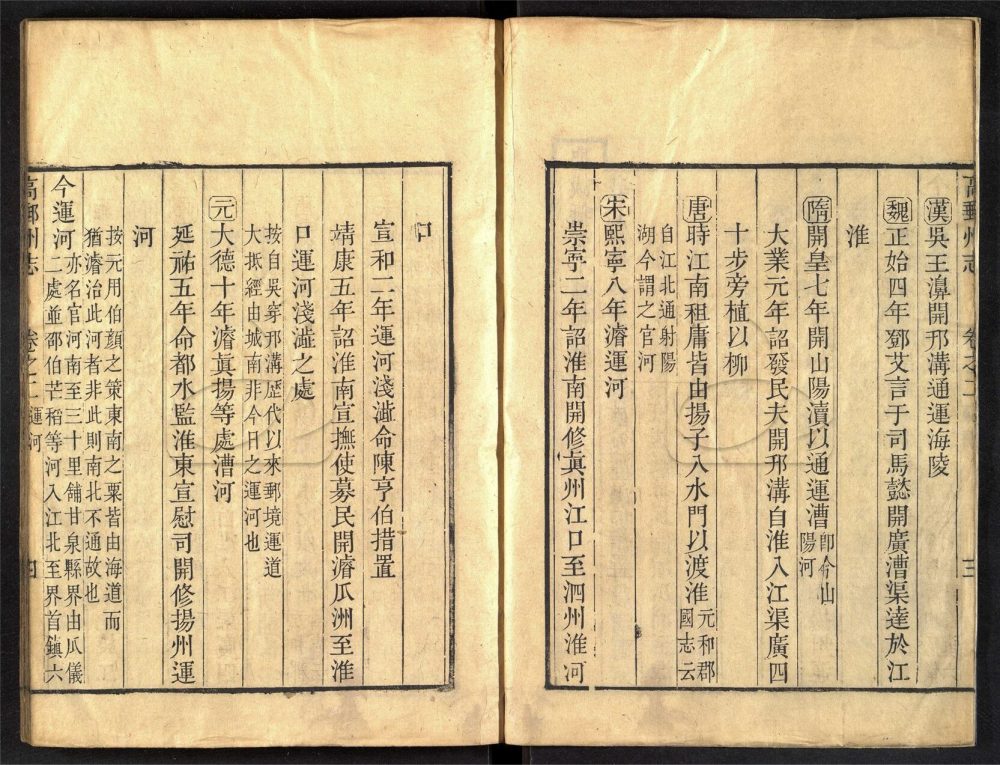 高郵州志 卷之二 三
漢吳王濞開邗溝通運海陵
魏正始四年鄧艾言于司馬懿開廣漕渠達於江
淮
隋開皇七年開山陽瀆以通運漕即今山
陽河
大業元年詔發民夫開邗溝自淮入江渠廣四
十步旁植以柳
唐時江南租庸皆由揚子入水門以渡淮元和郡
國志云
自江北通射陽
湖今謂之官河
宋熙寧八年濬運河
崇寧二年詔淮南開修眞州江口至泗州淮河
口
宣和二年運河淺澁命陳亨伯措置
靖康五年詔淮南宣撫使募民開濬瓜洲至淮
口運河淺澁之處
按自吳穿邗溝歷代以來郵境運道
大抵經由城南非今日之運河也
元大德十年濬眞揚等處漕河
延祐五年命都水監淮東宣慰司開修揚州運
河
按元用伯顏之策東南之粟皆由海道而
猶濬治此河者非此則南北不通故也
今運河亦名官河南至三十里舖甘泉縣界由瓜儀
二處並邵伯芒稻等河入江北至界首鎮六
高郵州志 卷之二 運河 四